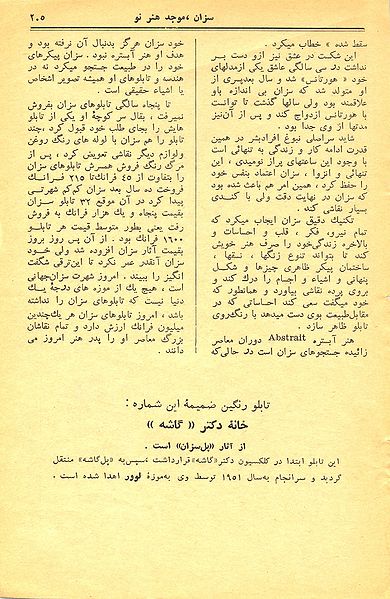 سزان ،موجد هنر نو
۲۰۵
سقط شده » خطاب میکرد .
این شاگرد عشق نیز ازو دست بر
نداشت دسی سالگی عاشق یکی ازمدلهای
خود « هورتانس » شد و سال بعدپسری از
او متولد شد که سزان بی اندازه باو
علاقمند بود ولی سالها گذشت تا توانست
با هورتانس ازدواج کند و پس از آن‌نیز
مدتها از وی جدا بود .
شاید سراصلی نبوغ افرادبشر در همین
قدرت ادامه کار و زندگی به تنهائی است
با وجود این ساعتهای پراز نومیدی ، این
تنهائی و انزوا ، سزان اعتماد بنفس خود
را حفظ کرد ، همین امر هم باعث شده بود
که سزان در نهایت دقت ولی با کندی
بسیار نقاشی کند .
تکنیک دقیق سزان ایجاب میکرد که
تمام نیرو، فکر ، قلب و احساسات و
بالاخره زندگی‌خود را صرف هنر خویش
کند تا بتواند تنوع رنگها ، نسقها ،
ساختمان پیکر ظاهری چیزها و شکل
پنهانی و اشیاء و اجسام را درک کند و
بروی پرده نقاشی بیاورد و همانطور که
خود میگفت سعی کند احساساتی که در
مقابل‌طبیعت بوی دست میدهد با رنگ‌روی
تابلو ظاهر سازد .
هنر آبستره Abstrait دوران معاصر
زائیده جستجوهای سزان است در حالی‌که
خود سزان هرگز بدنبال آن نرفته بود و
هدف او هنر آبستره نبود . سزان پیکرهای
خود را در طبیعت جستجو میکرد نه در
هندسه و تابلوهای او همیشه تصویر اشخاص
یا اشیاء حقیقی است .
تا پنجاه سالگی تابلوهای سزان بفروش
نمیرفت ، بقال سر کوچهٔ او یکی از تابلو
هایش را بجای طلب خود قبول کرد ، چند
تابلو را هم سزان با لوله های رنگ روغن
ولوازم دیگر نقاشی تعویض کرد ، پس از
مرگ رنگ فروش همسرش تابلوهای سزان
را بتفاوت از ۴۵ فرانک تا ۲۱۵ فرانک
فروخت ده سال بعد سزان کم‌کم شهرتی
پیدا کرد در آن موقع ۳۲ تابلو سزان
بقیمت پنجاه و یک هزار فرانک به فروش
رفت یعنی بطور متوسط قیمت هر تابلو
۱۶۰۰ فرانک بود . از آن پس روز بروز
بقیمت آثار سزان افزوده شد ولی خود
سزان آنقدر عمر نکرد تا این‌ترقی شگفت
انگیز را ببیند . امروز شهرت سزان‌جهانی
است ، هیچ یک از موزه های درجهٔ یک
دنیا نیست که تابلوهای سزان را نداشته
باشد ، امروز تابلوهای سزان هر یک‌چندین
میلیون فرانک ارزش دارد و تمام نقاشان
بزرگ معاصر او را پدر هنر امروز می
دانند .
تابلو رنگین ضمیمهٔ این شماره :
خانهٔ دکتر « گاشه »
از آثار «پل‌سزان» است .
این تابلو ابتدا در کلکسیون دکتر«گاشه» قرارداشت ،سپس‌به «پل‌گاشه» منتقل
گردید و سرانجام به‌سال ۱۹۵۱ توسط وی به‌موزهٔ لوور اهدا شده است .